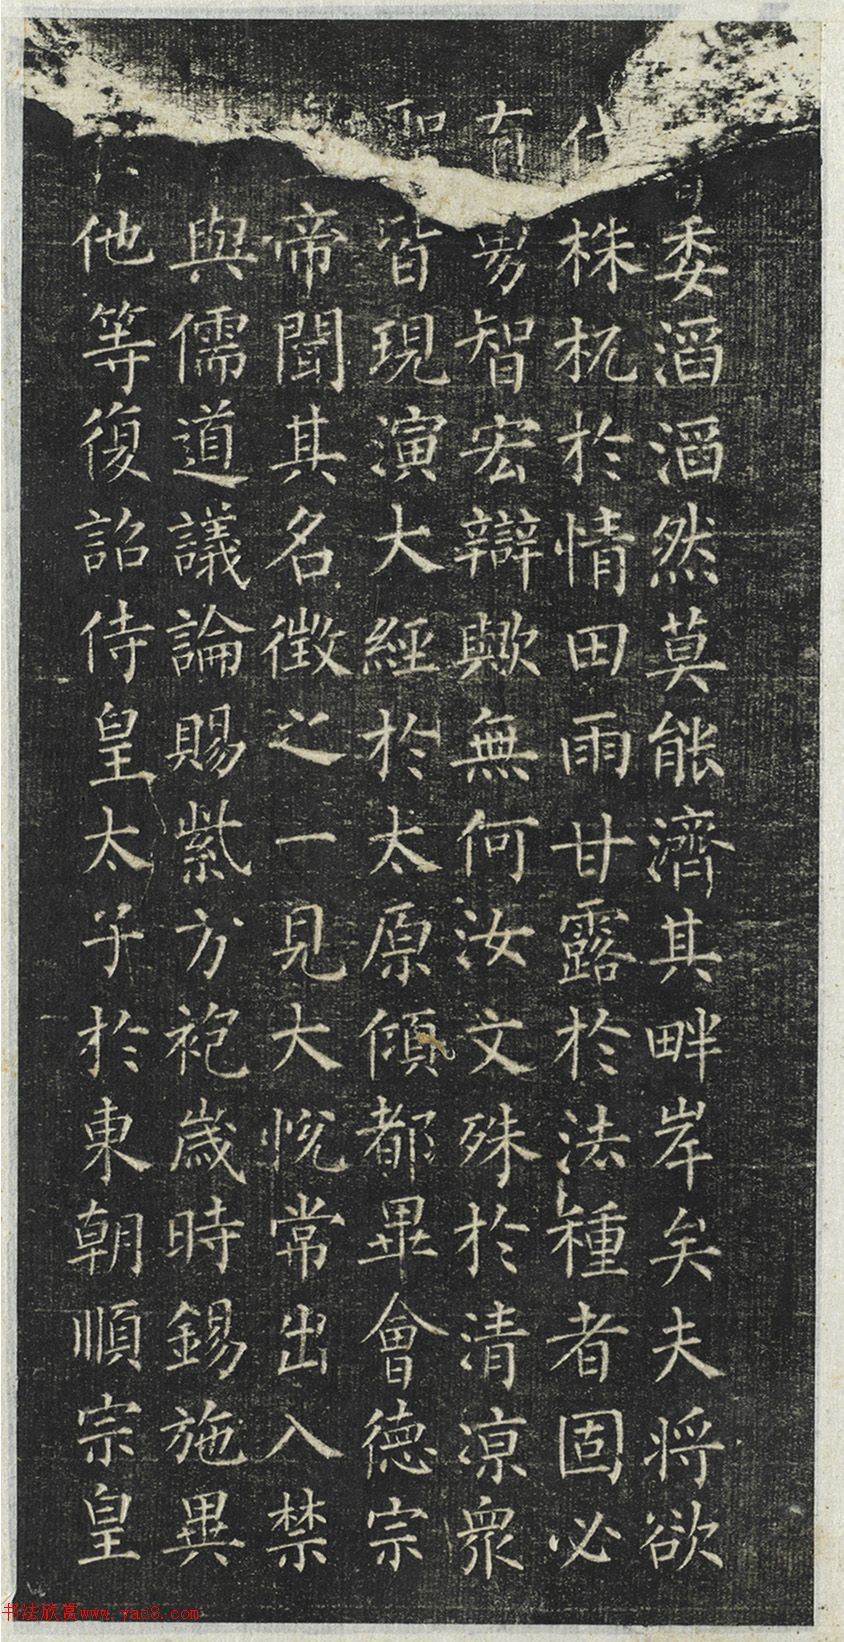 委滔滔然莫能濟其畔岸矣夫將欲
伐株杌於情田雨甘露於法種者固必
有勇智宏辯歟無何汝文殊於清涼衆
皆現演大經於太原傾都畢會德宗
帝聞其名徵之一見大悅常出入禁
與儒道議論賜紫方袍歲時錫施異
他等復詔侍皇太子於東朝順宗皇
书法欣赏www.yac8.com